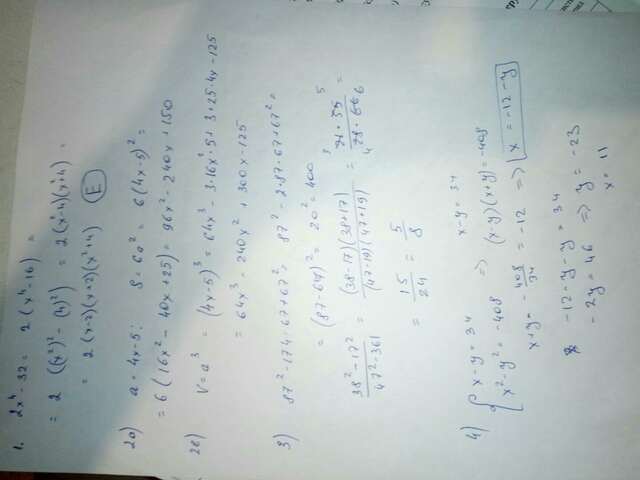 1. 2x⁴-32 = 2(x⁴-16) =
= 2((x²)²-(4)²) = 2(x²-4)(x²+4) =
= 2(x-2)(x+2)(x²+4) (E)
2a) a = 4x-5; S = 6a² = 6(4x-5)² =
= 6(16x²-40x+25) = 96x²-240x+150
2b) V = a³ = (4x-5)³ = 64x³-3·16x²·5+3·25·4x-125
= 64x³-240x²+300x-125
3) 87²-174·67+67² = 87²-2·87·67+67² =
= (87-67)² = 20² = 400
38²-17² / 47²-361 = (38-17)(38+17) / (47-19)(47+19) = 21·55 / 28·66 =
= 15/24 = 5/8
4) { x-y=34 x-y=34
x²-y²=-408 => (x-y)(x+y)=-408
x+y = -408/34 = -12 => x = -12-y
-12-y-y=34
-2y=46 => y=-23
x=11